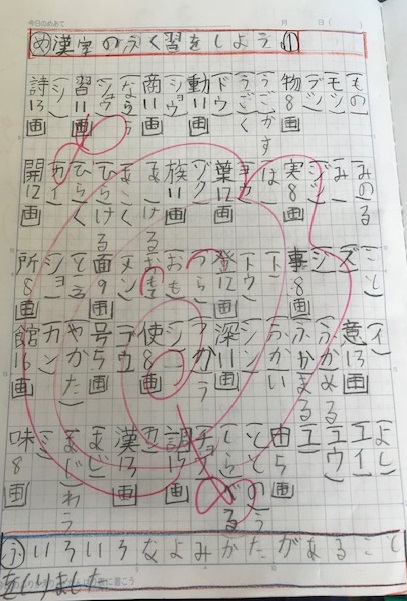 今日のめあて
月 日( )
め漢字のふく習をしよう①
詩13画
(シ)
習11画
(シュウ)
(ならう)
商11画
(ショウ)
動11画
(ドウ)
(うごく)
(うごかす)
物8画
(ブツ)
(モツ)
(もの)
開12画
(カイ)
(ひらく)
(ひらける)
(あく)
(あける)
族11画
(ゾク)
葉12画
(ヨウ)
(は)
実8画
(ジツ)
(み)
(みのる)
所8画
面9画
(メン)
(おも)
(おもて)
(つら)
登12画
(トウ)
(ト)
事8画
(ジ)
(ズ)
(こと)
館16画
(カン)
(やかた)
号5画
(ゴウ)
使8画
(シ)
(つかう)
深11画
(シン)
(ふかい)
(ふかまる)
(ふかめる)
意13画
(イ)
味8画
(ミ)
漢13画
(カン)
調15画
(チョウ)
(しらべる)
(ととのう)
由5画
(ユ)
(ユウ)
(ユイ)
(よし)
ふいろいろなよみかたがあること
をしりました